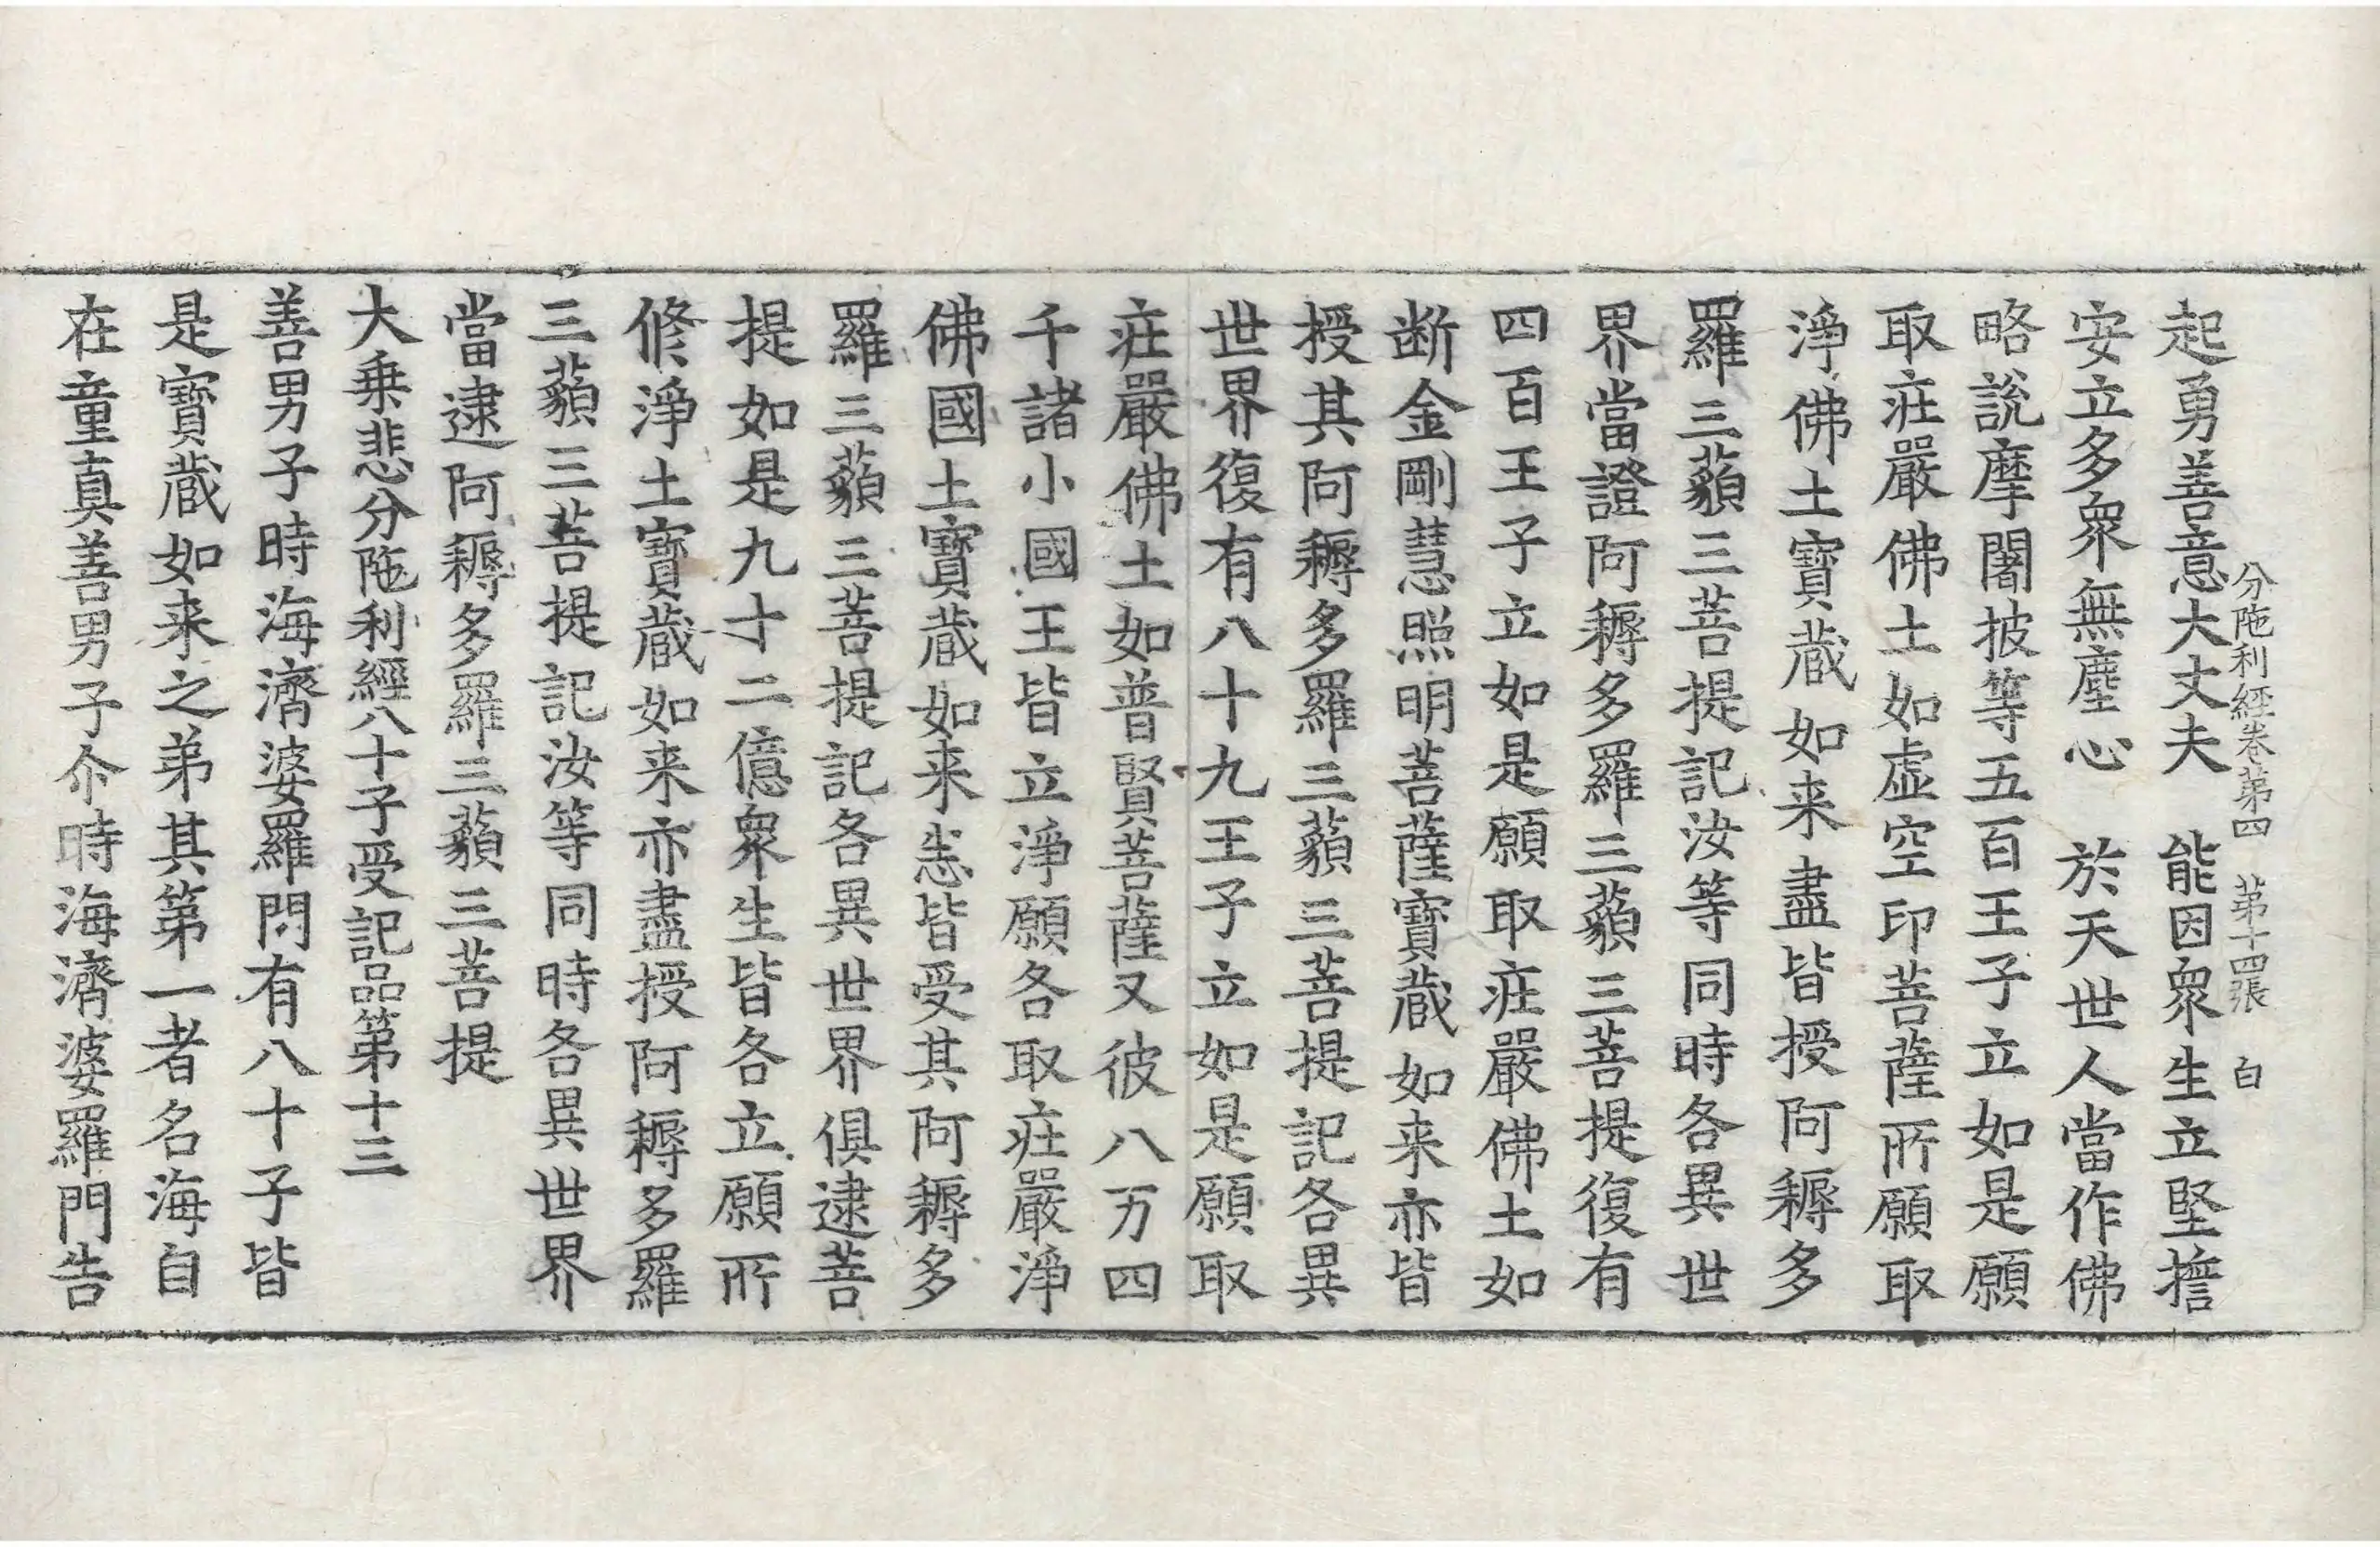 分陁利經卷第四　第十四張　白
起勇善意大丈夫　能因衆生立堅擔
安立多衆無塵心　於天世人當作佛
略說摩闍披等五百王子立如是願
取莊嚴佛土如虛空印菩薩所願取
淨佛土寶藏如来盡皆授阿耨多
羅三藐三菩提記汝等同時各異世
界當證阿耨多羅三藐三菩提復有
四百王子立如是願取莊嚴佛土如
断金剛慧照明菩薩寶藏如来亦皆
授其阿耨多羅三藐三菩提記各異
世界復有八十九王子立如是願取
莊嚴佛土如普賢菩薩又彼八万四
千諸小國王皆立淨願各取莊嚴淨
佛國土寶藏如来悉皆受其阿耨多
羅三藐三菩提記各異世界俱逮菩
提如是九十二億衆生皆各立願所
修淨土寶藏如来亦盡授阿耨多羅
三藐三菩提記汝等同時各異世界
當逮阿耨多羅三藐三菩提
大乗悲分陁利經八十子受記品第十三
善男子時海濟婆羅門有八十子皆
是寶藏如来之弟其第一者名海自
在童真善男子尒時海濟婆羅門告